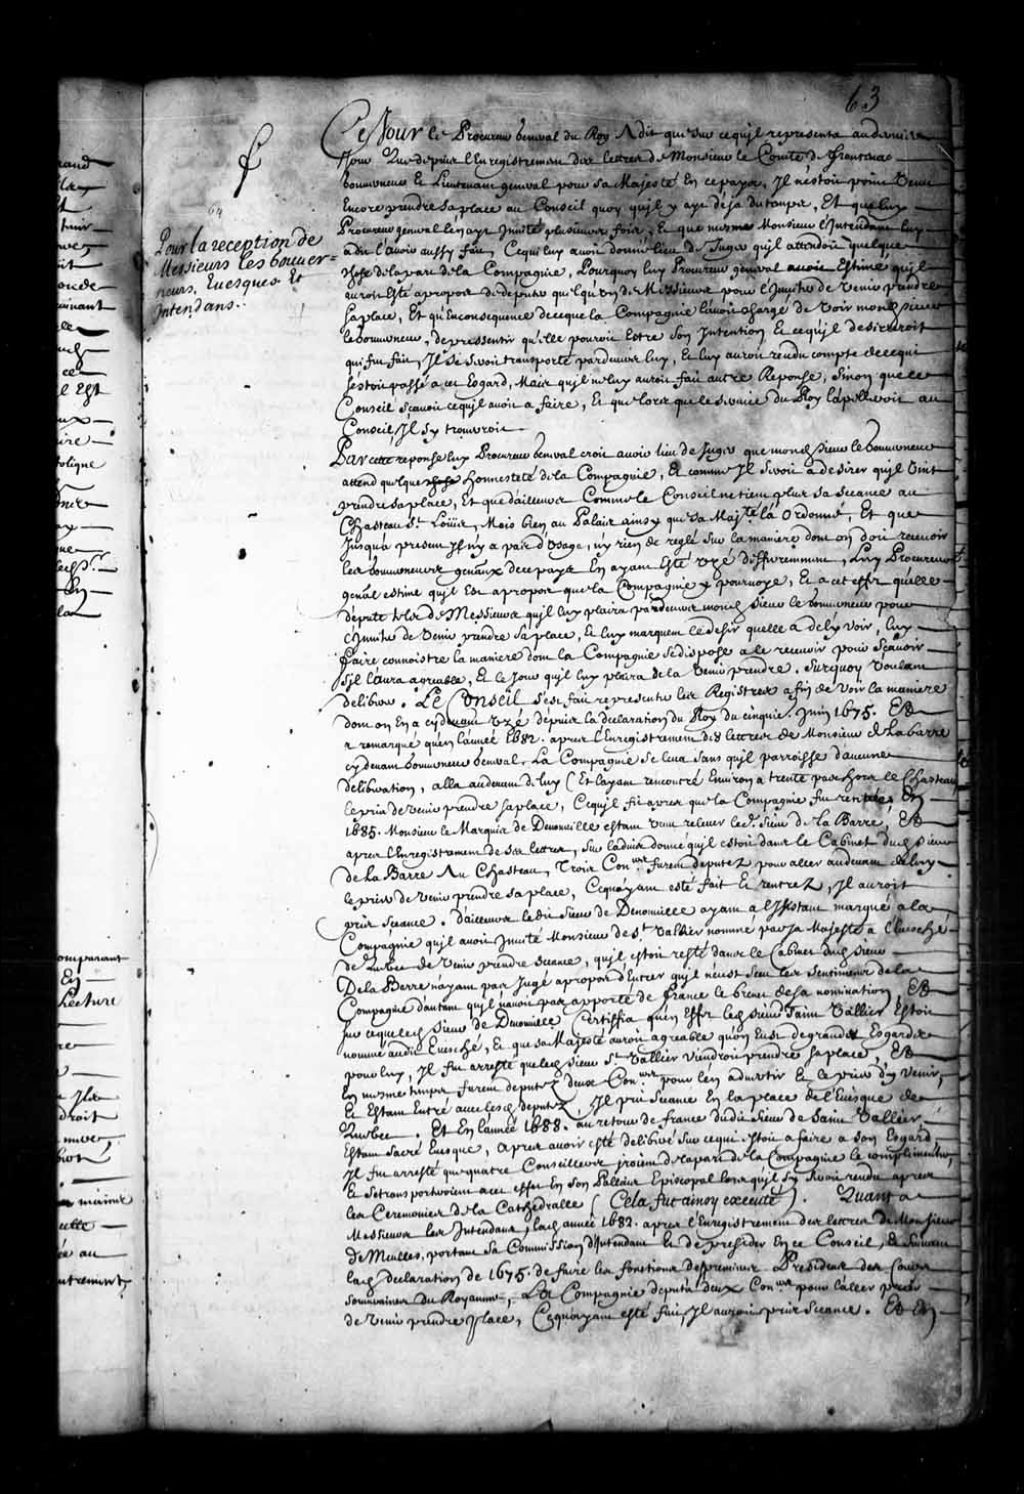 63
Ce Jour le Procureur general du Roy A dit que sur ce qu'il representa au dernier
Jour Que depuis l'Enregistrement des lettres de Monsieur le Comte de Frontenac
Gouverneur et Lieutenant general pour sa Majesté En ce payx, Il n'estoit point Venu
Encore prendre sa place au Conseil quoy qu'il y aye desja du temps, Et que luy
Procureur general l'en aye Invité plusieurs fois, Et que mesme Monsieur l'Intendant luy
a dit l'avoir aussy fait, Ce qui luy avoit donné lieu de Juger qu'il attendoit quelque
chose de la part de la Compagnie, Pourquoy luy Procureur general auoit Estimé qu'il
auroit esté apropos de deputer quelqu'un de Messieurs pour l'Inviter de Venir prendre
sa place, Et qu'En consequence de ce que la Compagnie l'avoit chargé de Voir mond. sieur
le Gouverneur, de pressentir qu'elle pouroit Estre son Intention Et ce qu'il desireroit
qui fut fait, Il se seroit transporté pardevers luy, Et luy auroit rendu compte de ce qui
s'estoit passé a cet Esgard, Mais qu'il ne luy auroit fait autre Reponse, Sinon que le
Conseil sçavoit ce qu'il avoit a faire, Et que lors que le service du Roy l'apelleroit au
Conseil, Il s'y trouveroit
Par cette reponse luy Procureur general croit avoir lieu de Juger que mond. sieur le Gouverneur
attend quelque honnesteté de la Compagnie, Et comme Il seroit a desirer qu'il Vint
prendre sa place, Et que d'ailleurs Comme le Conseil ne tient plus sa seance au
Chasteau St. Loüis, Mais bien au Palais ainsy que sa Majté. l'a Ordonné, Et que
Jusqu'a present Il n'y a pas d'Usage, n'y rien de reglé sur la maniere dont on doit recevoir
les Gouverneurs genaux de ce payx En ayant Esté Uzé differemment, Luy Procureur
genal estime qu'il Est apropos que la Compagnie y pourvoye, Et a cet effet qu'elle
depute de Messieurs qu'il luy plaira pardevers mond. sieur le Gouverneur pour
l'Inviter de Venir prendre sa place, Et luy marquer le desir quelle a de l'y voir, luy
faire connoistre la maniere dont la Compagnie se dispose a le recevoir pour sçavoir
s'il l'aura agreable, Et le Jour qu'il luy plaira de la Venir prendre. Surquoy Voulant
deliberer. Le Conseil s'est fait representer les Registres afin de Voir la maniere
dont on En a cydevant Uzé depuis la declaration du Roy du cinquie. Juin 1675. Et
a remarqué qu'en l'année 1682. apres l'Enregistrement des lettres de Monsieur de la barre
cydevant Gouverneur general, La Compagnie se leva sans qu'il parroisse d'aucune
deliberation, alla audevant de luy (Et l'ayant rencontré Environ a trente pas hors le Chasteau
le pria de venir prendre sa place, Ce qu'il fit apres que la Compagnie fut rentrée, En
1685. Monsieur le Marquis de Denonville estant Venu relever led. Sieur de la Barre, Et
apres l'Enregistrement de ses lettres, sur l'advis donné qu'il estoit dans le Cabinet dud. sieur
de la Barre Au Chasteau, Trois Coners. furent deputez pour aller audevant de luy
le prier de venir prendre sa place, Ce qu'ayant esté fait Et rentrez, Il auroit
pris seance. D'ailleurs led. Sieur de Denonville ayant a l'Instant marqué a la
Compagnie qu'il avoit Invité Monsieur de St. Vallier nommé par sa Majesté a l'Evesché
de Quebec de Venir prendre seance, qu'il estoit resté dans le Cabinet dud. sieur
De la Barre n'ayant pas Jugé apropos d'Entrer qu'il n'eust sceu les sentimens de la
Compagnie d'autant qu'il n'avoit pas apporté de France le brevet de sa nomination, Et
sur ce que led. sieur de Denonville Certiffia qu'en Effet led. sieur saint Vallier Estoit
nommé aud. Evesché, Et que sa Majesté auroit agreable quon Eust de grands Esgards
pour luy, Il fut arresté que led. sieur St. Vallier viendroit prendre sa place, Et
En mesme temps furent deputez deux Coners. pour l'en advertir Et le prier d'y venir,
Et Estant Entré avec lesd. deputez Il prit Seance En la place de l'Evesque de
Quebec. Et En l'année 1688. au retour de France dudit Sieur de Saint Vallier,
Estant sacré Evesque, Apres avoir esté deliberé sur ce qui estoit a faire a son Esgard,
Il fut arresté que quatre Conseillers Iroient de la part de la Compagnie le complimenter,
Et se transporteroient a cet effet En son Pallais Episcopal lors qu'il s'y seroit rendu apres
les Ceremonies de la Cathedralle (Cela fut ainsy executé). Quant a
Messieurs les Intendans, lad. année 1682. apres l'Enregistrement des lettres de Monsieur
de Meulles, portant sa Commission d'Intendant Et de presider En ce Conseil, Et suivant
lad. declaration de 1675. de faire les fonctions de premier President des Cours
souveraines du Royaume, La Compagnie deputa deux Coners. pour l'aller prier
de Venir prendre place, Ce qu'ayant esté fait, Il auroit pris Seance. Et En
64
Pour la reception de
Messieurs les Gouver=
neurs, Euesques Et
Intendans.